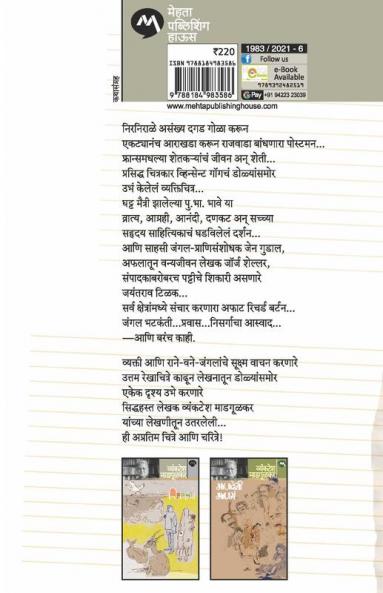 मेहता
पब्लिशिंग
हाऊस
कथासंग्रह
₹220
ISBN 9788184983586
9 788184 983586
1983 / 2021 - 6
Follow us
e-Book
Available
G Pay +91 94223 23039
www.mehtapublishinghouse.com
निरनिराळे असंख्य दगड गोळा करून
एकट्यानंच आराखडा करून राजवाडा बांधणारा पोस्टमन...
फ्रान्समधल्या शेतकऱ्यांचं जीवन अन् शेती...
प्रसिद्ध चित्रकार व्हिन्सेन्ट गॉगचं डोळ्यांसमोर
उभं केलेलं व्यक्तिचित्र...
घट्ट मैत्री झालेल्या पु.भा. भावे या
व्रात्य, आग्रही, आनंदी, दणकट अन् सच्च्या
सहृदय साहित्यिकाचं घडविलेलं दर्शन...
आणि साहसी जंगल-प्राणिसंशोधक जेन गुडाल,
अफलातून वन्यजीवन लेखक जॉर्ज शेल्लर,
संपादकाबरोबरच पट्टीचे शिकारी असणारे
जयंतराव टिळक...
सर्व क्षेत्रांमध्ये संचार करणारा अफाट रिचर्ड बर्टन...
जंगल भटकंती...प्रवास...निसर्गाचा आस्वाद...
—आणि बरंच काही.
व्यक्ती आणि राने-वने-जंगलांचे सूक्ष्म वाचन करणारे
उत्तम रेखाचित्रे काढून लेखनातून डोळ्यांसमोर
एकेक दृश्य उभे करणारे
सिद्धहस्त लेखक व्यंकटेश माडगूळकर
यांच्या लेखणीतून उतरलेली...
ही अप्रतिम चित्रे आणि चरित्रे!
व्यंकटेश
माडगूळकर
व्यंकटेश
माडगूळकर